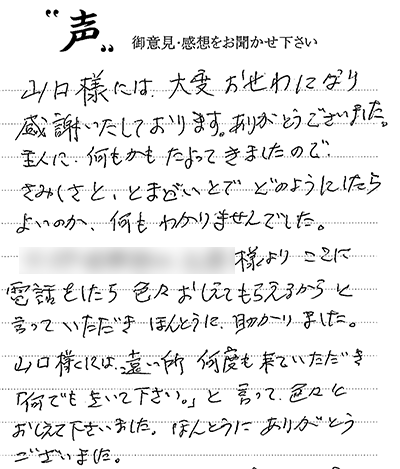 “声” 御意見・感想をお聞かせ下さい
山口様には、大変おせわになり
感謝いたしております。ありがとうございました。
主人に、何もかもたよってきましたので、
さみしさと、とまどいとでどのようにしたら
よいのか、何もわかりませんでした。
様より ここに
電話をしたら色々おしえてもらえるからと
言っていただきほんとうに、助かりました。
山口様には、遠い所 何度も来ていただき
「何でも きいて下さい。」と言って、色々と
おしえて下さいました。ほんとうにありがとう
ございました。